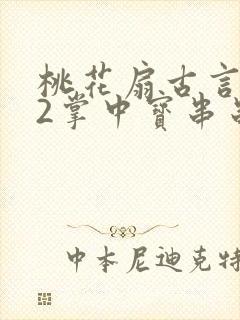 桃花扇古言
2掌中寶串
中本尼迪克特